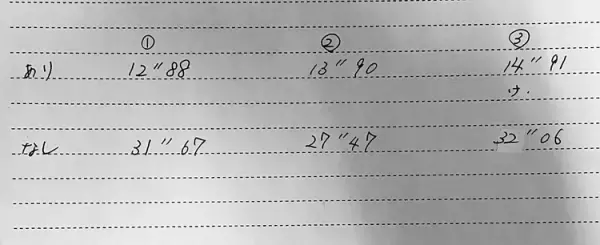 ① ② ③
あり 12"88 13"90 14"91
なし 31"67 27"47 32"06